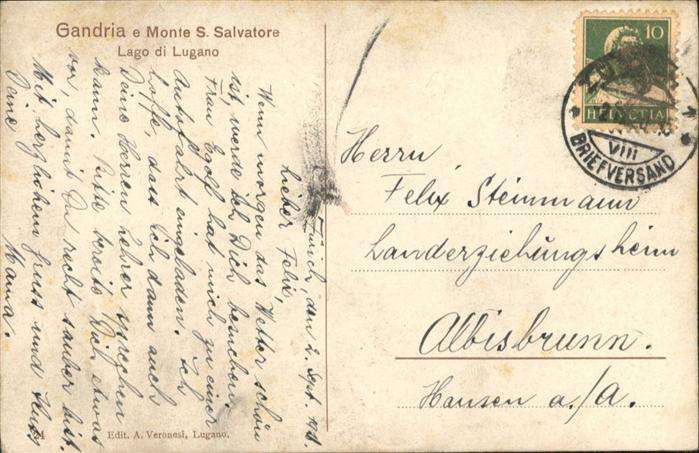 Gandria e Monte S. Salvatore
Lago di Lugano
Zürich, den 2. Sept.
Lieber Felix,
Wenn morgen das Wetter schön
ist, werde ich Dich besuchen.
Frau Egoff hat mich zu einer
Autofahrt eingeladen. Ich
hoffe, dass ich dann auch
Deine Herren Lehrer sprechen
kann. Rüste bereits Dich etwas
vor, damit Du recht sauber bist.
Mit herzlichem Gruss und Kuss
Deine Mama.
Edit. A. Veronesi, Lugano.
10
HELVETIA
VIII
BRIEFVERSAND
Herrn
Felix Steinmann
Landerziehungsheim
Albisbrunn.
Hausen a./A.